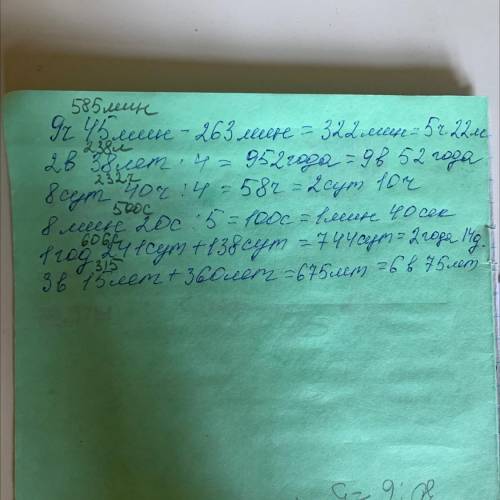 585мин
9ч 45мин - 263мин = 322мин = 5ч 22м
238л
2в 38лет · 4 = 952года = 9в 52 года
232ч
8сут 40ч : 4 = 58ч = 2сут 10ч
500с
8 мин 20с : 5 = 100с = 1мин 40сек
606
1 год 241сут + 138сут = 744сут = 2года 14д.
315
3в 15лет + 360лет = 675лет = 6 в 75лет